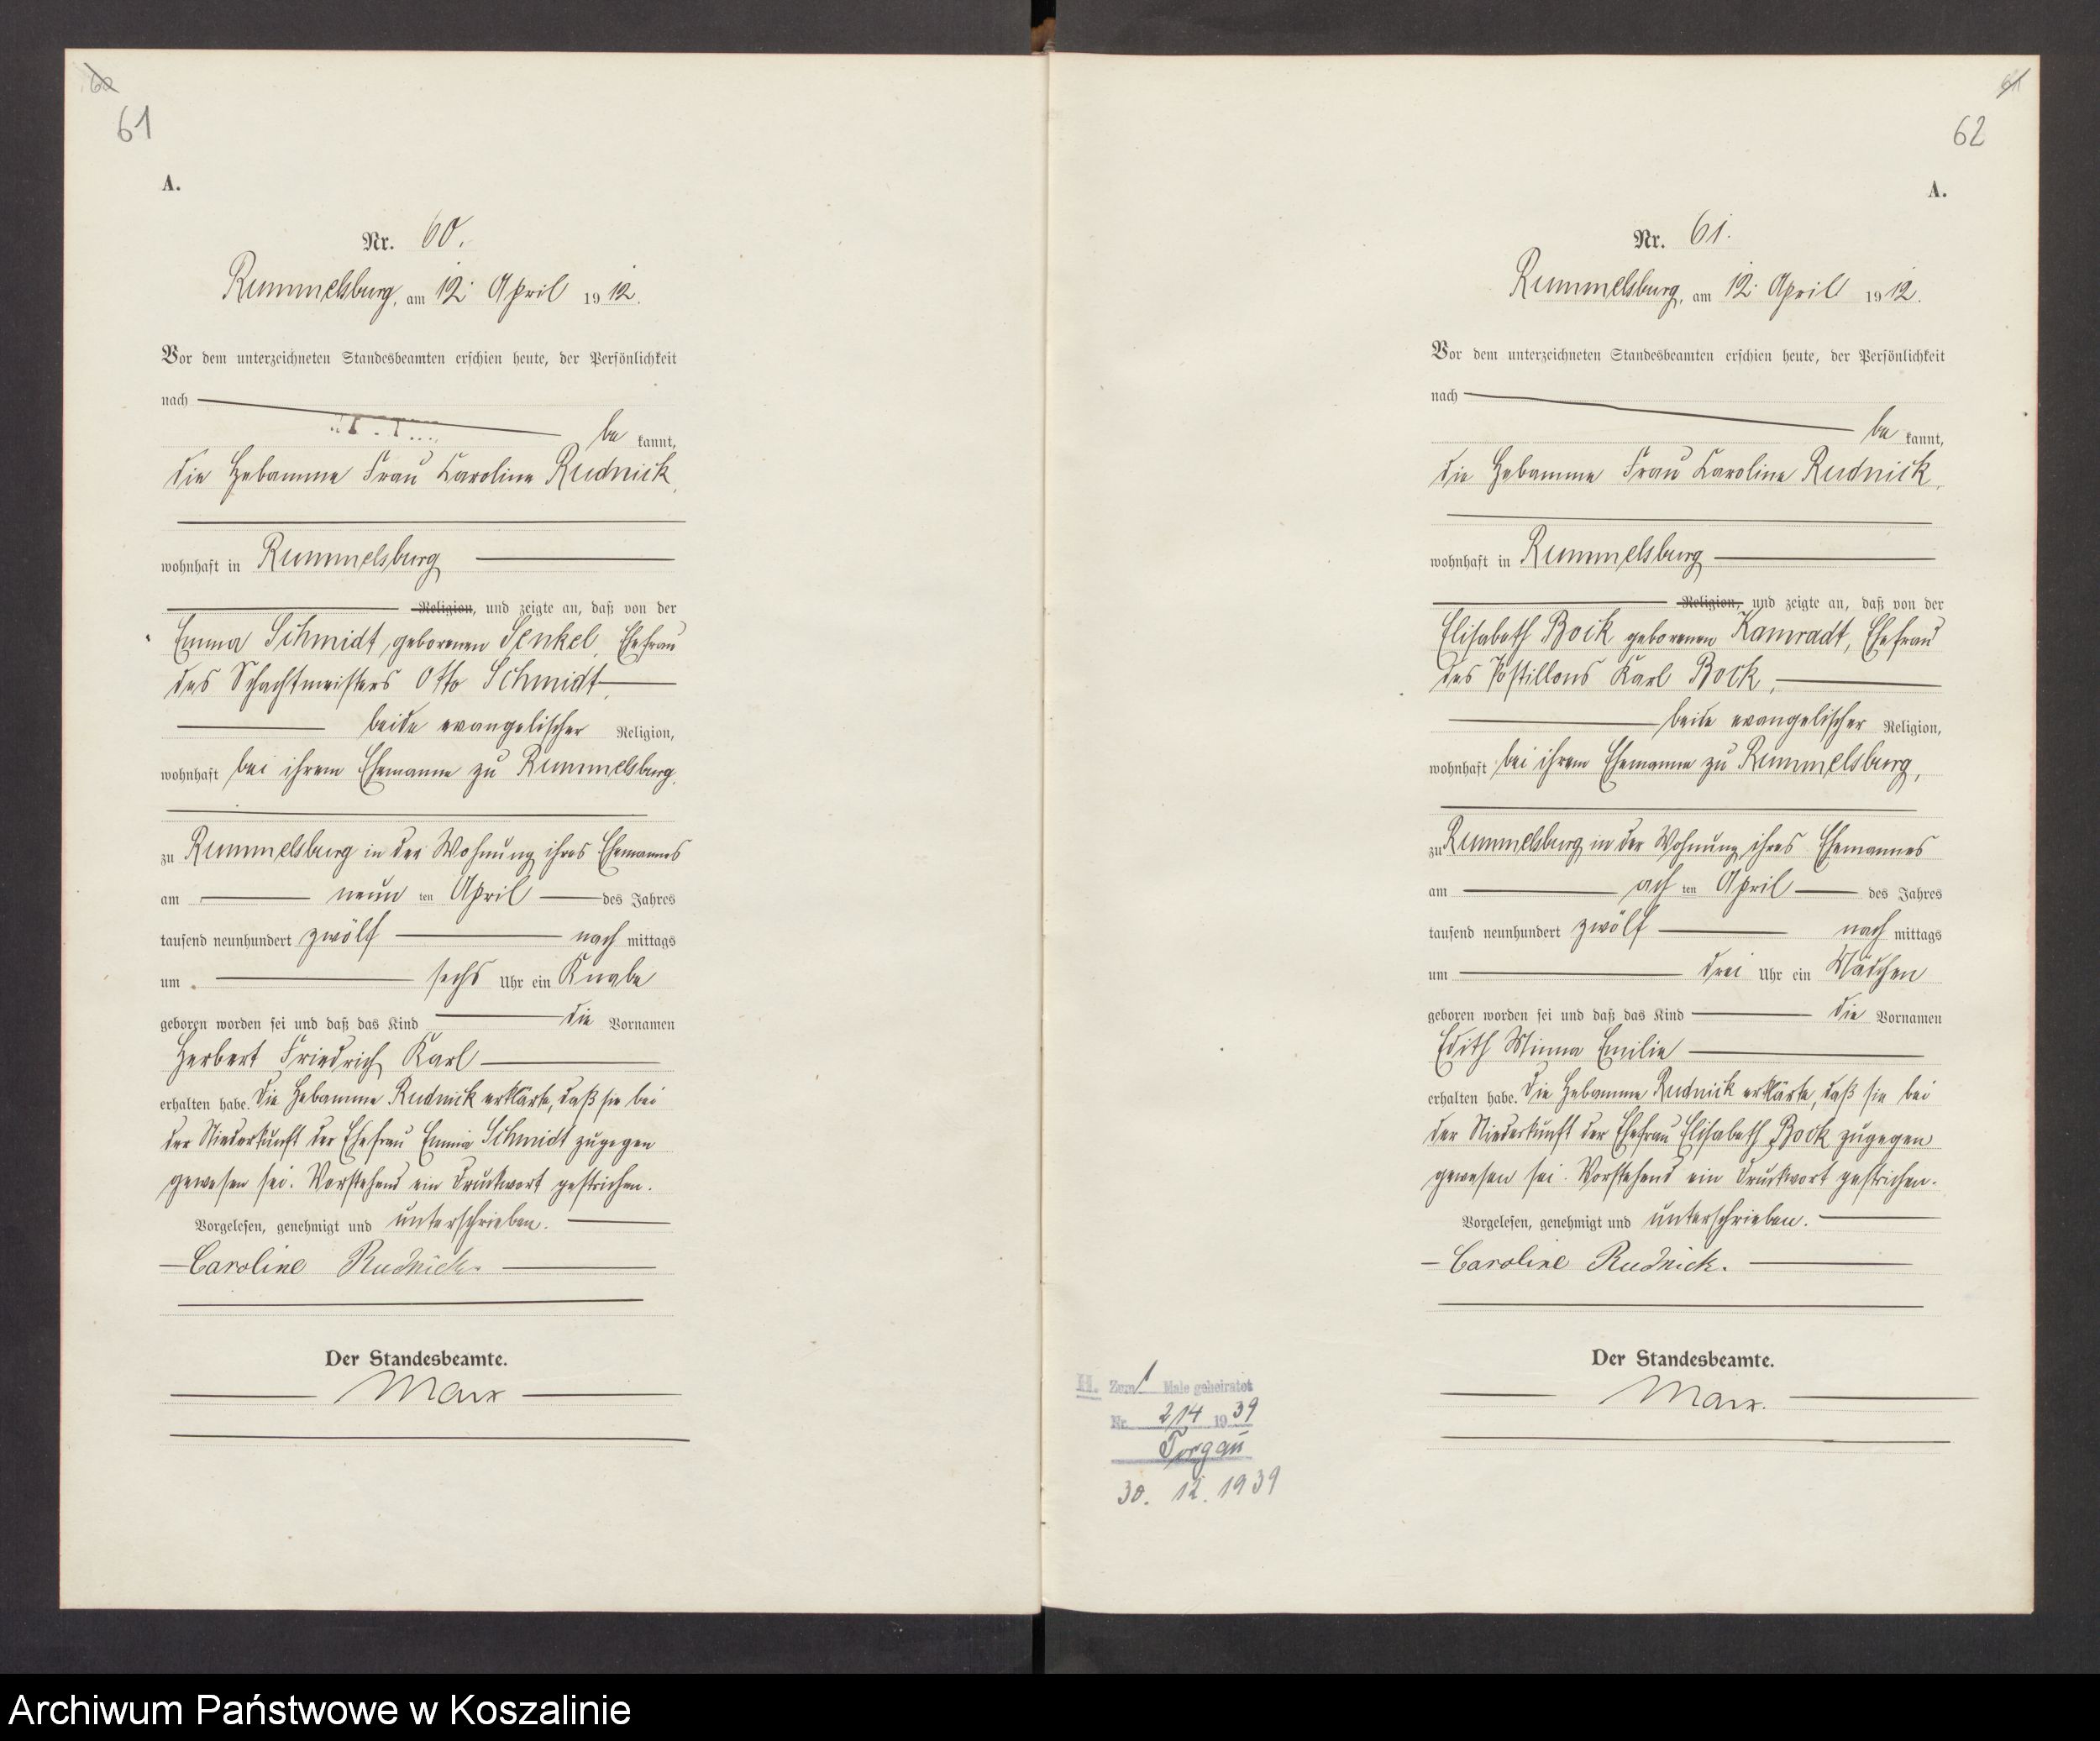 60
61
A.
Nr. 60.
Rummelsburg, am 12. April 1912.
Vor dem unterzeichneten Standesbeamten erschien heute, der Persönlichkeit
nach
be kannt,
die Hebamme Frau Caroline Rudnick,
wohnhaft in Rummelsburg
Religion, und zeigte an, daß von der
Emma Schmidt, geborenen Senkel, Ehefrau
des Schachtmeisters Otto Schmidt,
beide evangelischer Religion,
wohnhaft bei ihrem Ehemanne zu Rummelsburg,
zu Rummelsburg in der Wohnung ihres Ehemannes
am neun ten April des Jahres
tausend neunhundert zwölf nach mittags
um sechs Uhr ein Knabe
geboren worden sei und daß das Kind die Vornamen
Herbert Friedrich Karl
erhalten habe. Die Hebamme Rudnick erklärte, daß sie bei
der Niederkunft der Ehefrau Emma Schmidt zugegen
gewesen sei. Vorstehend ein Druckwort gestrichen.
Vorgelesen, genehmigt und unterschrieben.
Caroline Rudnick.
Der Standesbeamte.
Marx
61
62
A.
Nr. 61.
Rummelsburg, am 12. April 1912.
Vor dem unterzeichneten Standesbeamten erschien heute, der Persönlichkeit
nach
be kannt,
die Hebamme Frau Caroline Rudnick,
wohnhaft in Rummelsburg
Religion, und zeigte an, daß von der
Elisabeth Bock geborenen Kamradt, Ehefrau
des Postillons Karl Bock,
beide evangelischer Religion,
wohnhaft bei ihrem Ehemanne zu Rummelsburg,
zu Rummelsburg in der Wohnung ihres Ehemannes
am ach ten April des Jahres
tausend neunhundert zwölf nach mittags
um drei Uhr ein Mädchen
geboren worden sei und daß das Kind die Vornamen
Edith Minna Emilie
erhalten habe. Die Hebamme Rudnick erklärte, daß sie bei
der Niederkunft der Ehefrau Elisabeth Bock zugegen
gewesen sei. Vorstehend ein Druckwort gestrichen.
Vorgelesen, genehmigt und unterschrieben.
Caroline Rudnick.
Der Standesbeamte.
Marx.
H. Zum 1 Male geheiratet
Nr. 214 1939
Torgau
30. 12. 1939
Archiwum Państwowe w Koszalinie